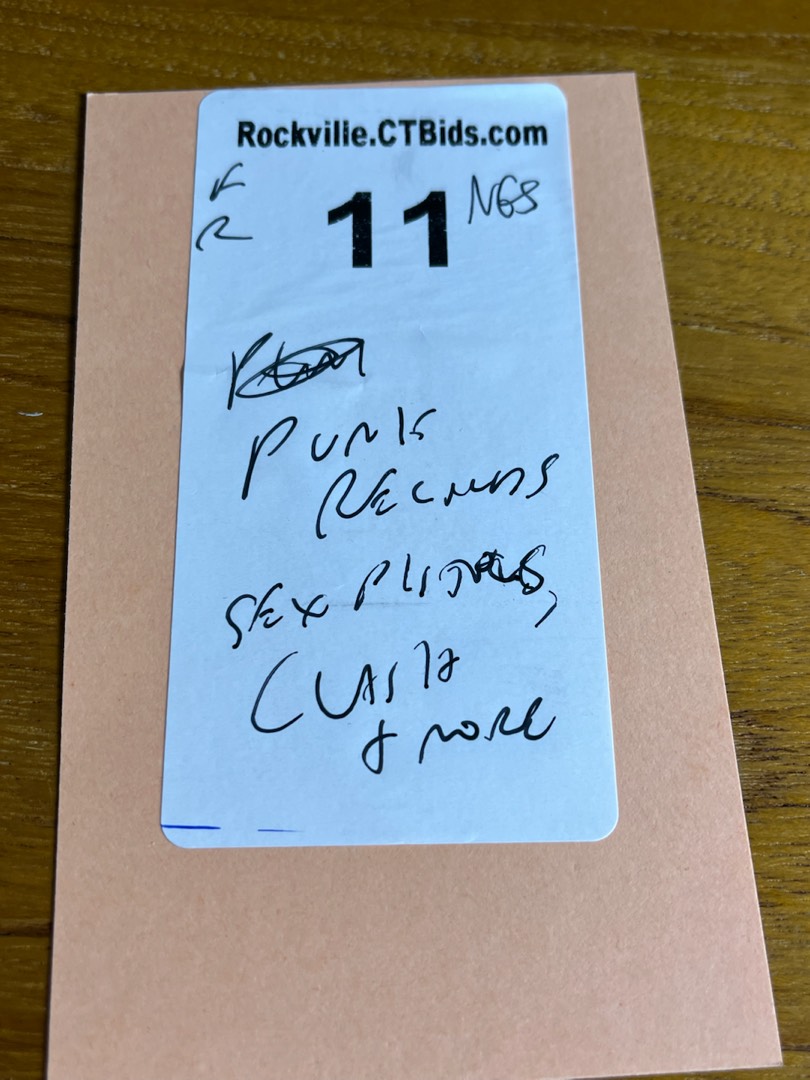 Rockville.CTBids.com
F
R
11 NGS
PUNK
RECORDS
SEX PISTOLS,
CLASH
& MORE